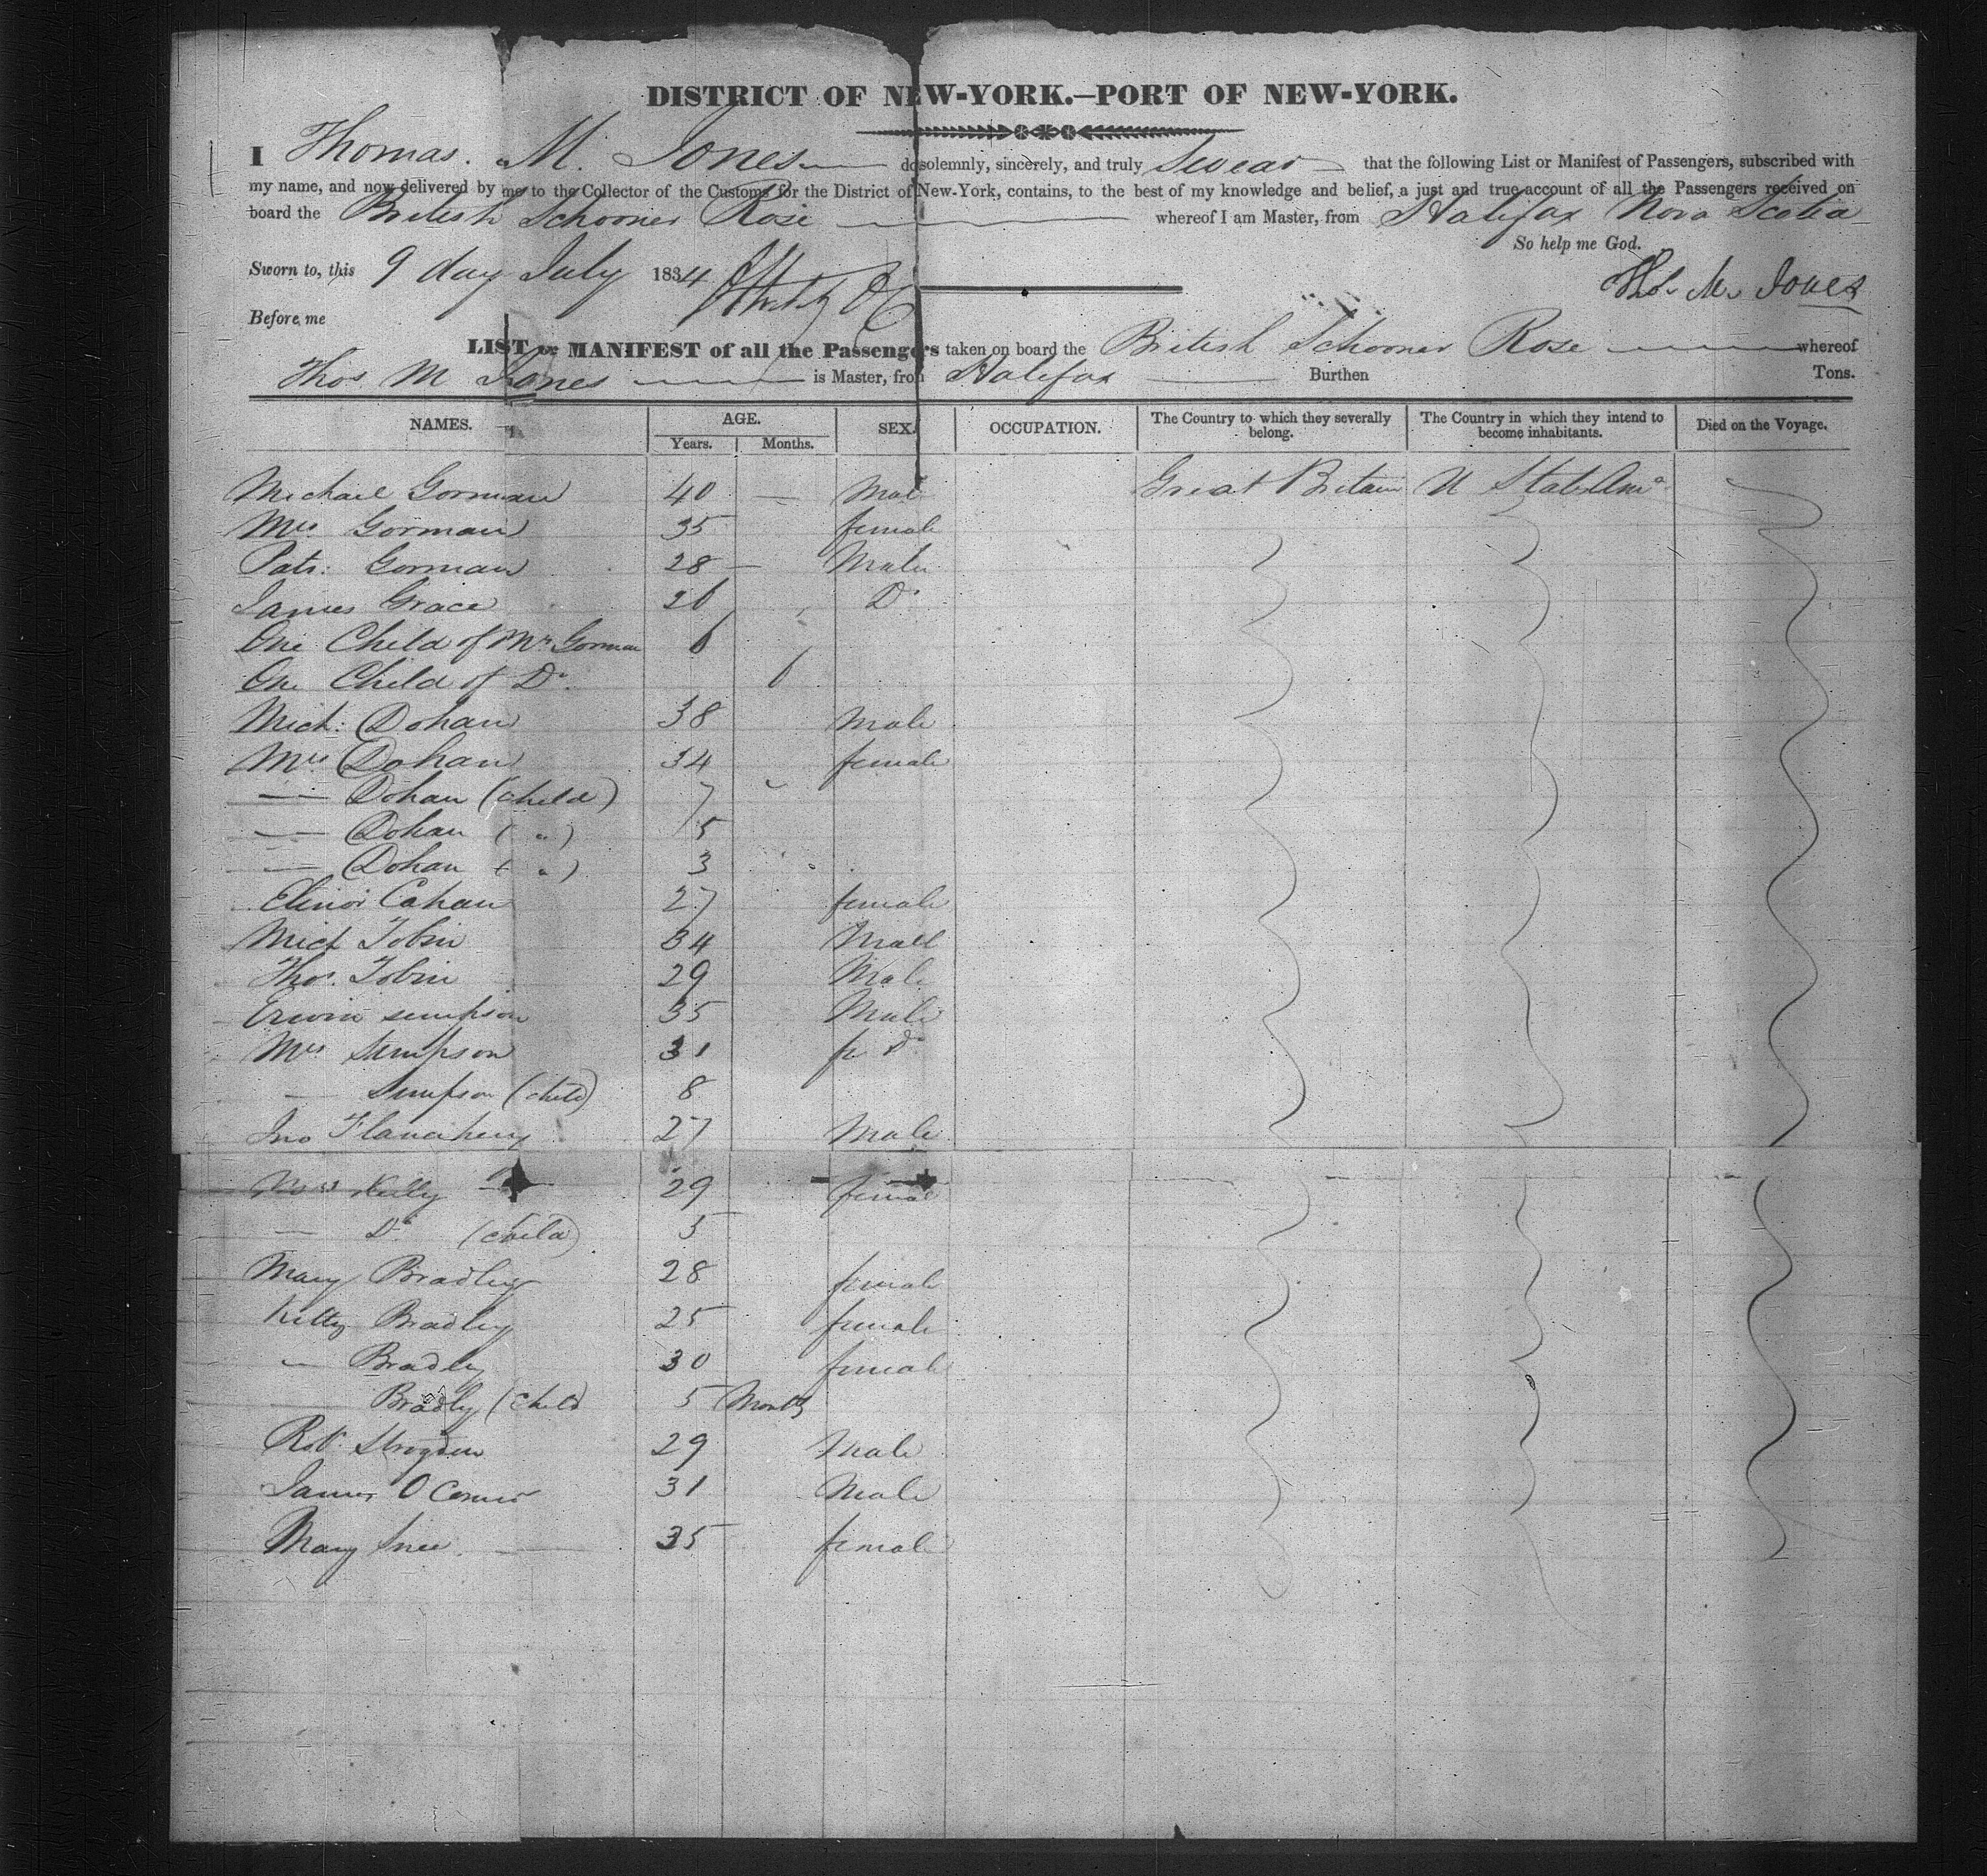 DISTRICT OF NEW-YORK.—PORT OF NEW-YORK.
I Thomas. M. Jones do solemnly, sincerely, and truly Swear that the following List or Manifest of Passengers, subscribed with
my name, and now delivered by me to the Collector of the Customs for the District of New-York, contains, to the best of my knowledge and belief, a just and true account of all the Passengers received on
board the British Schooner Rose whereof I am Master, from Halifax Nova Scotia
So help me God.
Sworn to, this 9 day July 1834
Thos. M. Jones
Before me
LIST or MANIFEST of all the Passengers taken on board the British Schooner Rose whereof
Thos. M Jones is Master, from Halifax Burthen Tons.
NAMES. AGE. Years. Months. SEX. OCCUPATION. The Country to which they severally belong. The Country in which they intend to become inhabitants. Died on the Voyage.
Michael Gorman 40 — Male Great Britain U States Ama
Mrs Gorman 35 female
Patr: Gorman 28 — Male
James Grace 26 Do
One Child of Mr. Gorman 6
One Child of Do. 6
Mich: Dohan 38 Male
Mrs Dohan 34 female
— Dohan (Child) 7
— Dohan ( " ) 5
— Dohan ( " ) 3
Elinor Cahan 27 female
Mich Tobin 34 Male
Thos. Tobin 29 Male
Erwin Simpson 35 Male
Mrs Simpson 31 fe Do
— Simpson (child) 8
Jno Flanahery 27 Male
Mrs Kelly 29 female
— Do (child) 5
Mary Bradley 28 female
Kitty Bradley 25 female
" Bradley 30 female
Bradly (child 5 Months
Robt. 29 Male
James O Conner 31 Male
Mary 35 female